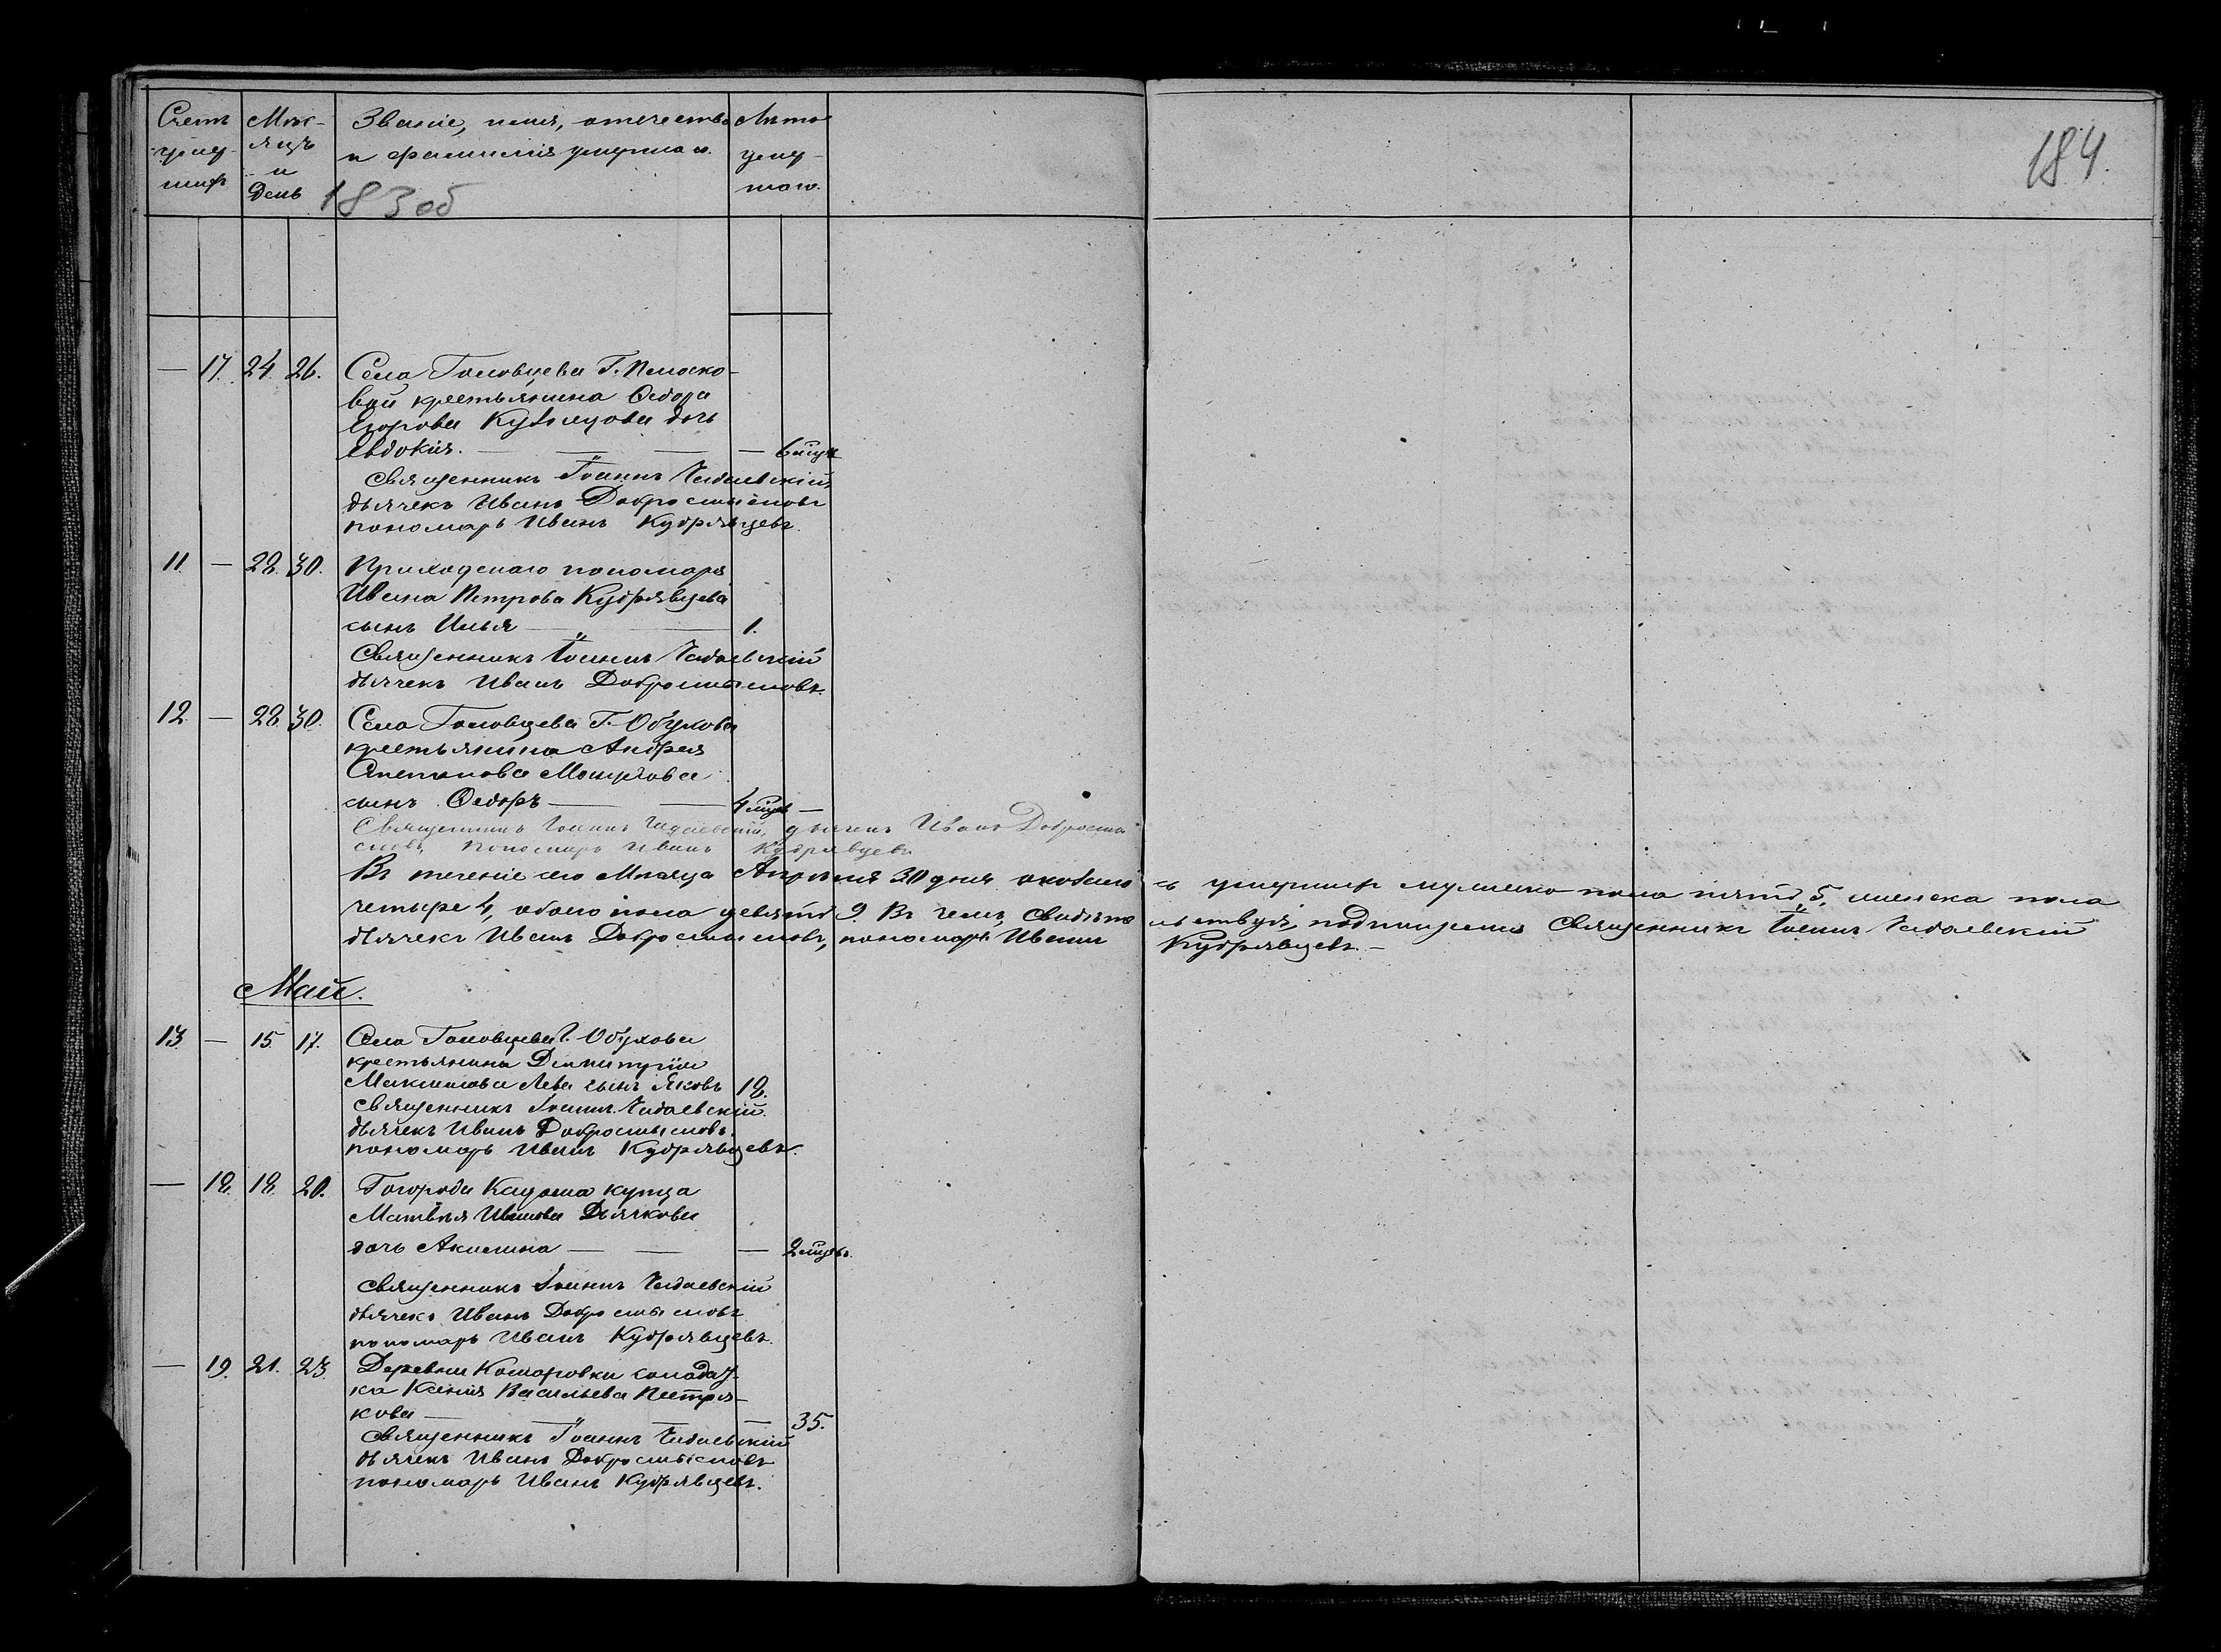 Счетъ умер- шихъ
Мѣс- яцъ и день
Званіе, имя, отечество и фамилія умершаго.
Лѣто умер- шаго.
183 об
184.
— 17. 24. 26. Села Головщева Г. Плоско-
вой крестьянина Ѳедора
Егорова Кузнецова дочь
Евдокія. — — — — 6 мцъ
Священникъ Іоаннъ Чадаевскій,
дьячекъ Иванъ Добросмысловъ
пономарь Иванъ Кудрявцевъ.
11. — 28. 30. Приходскаго пономаря
Ивана Петрова Кудрявцева
сынъ Илья — — 1.
Священникъ Іоаннъ Чадаевскій
дьячекъ Иванъ Добросмысловъ.
12. — 28. 30. Села Головщева Г. Обухова
крестьянина Андрея
Степанова
сынъ Ѳедоръ — — 4 мцъ —
Священникъ Іоаннъ Чадаевскій, дьячекъ Иванъ Добросмы-
словъ, пономарь Иванъ Кудрявцевъ.
Въ теченіе сего Мѣсяца Апрѣля 30 дня оказалось умершихъ мужеска пола пять, 5, женска пола
четыре 4, обоего пола девять 9. Въ чемъ, свидѣтельствуя, подписуемся Священникъ Іоаннъ Чадаевскій
дьячекъ Иванъ Добросмысловъ, пономарь Иванъ Кудрявцевъ. —
Май.
13. — 15. 17. Села Головщева Г. Обухова
крестьянина Димитрія
Максимова Лева сынъ Яковъ 18.
Священникъ Іоаннъ Чадаевскій.
дьячекъ Иванъ Добросмысловъ.
пономарь Иванъ Кудрявцевъ.
— 18. 18. 20. Г. города Кадома купца
Матвѣя Иванова Дьячкова
дочь Акилина — — — 2 мцъ.
Священникъ Іоаннъ Чадаевскій
дьячекъ Иванъ Добросмысловъ
пономарь Иванъ Кудрявцевъ.
— 19. 21. 23. Деревни Комаровки солдат-
ка Ксенія Васильева Пестря-
кова — — — — 35.
Священникъ Іоаннъ Чадаевскій
дьячекъ Иванъ Добросмысловъ
пономарь Иванъ Кудрявцевъ.